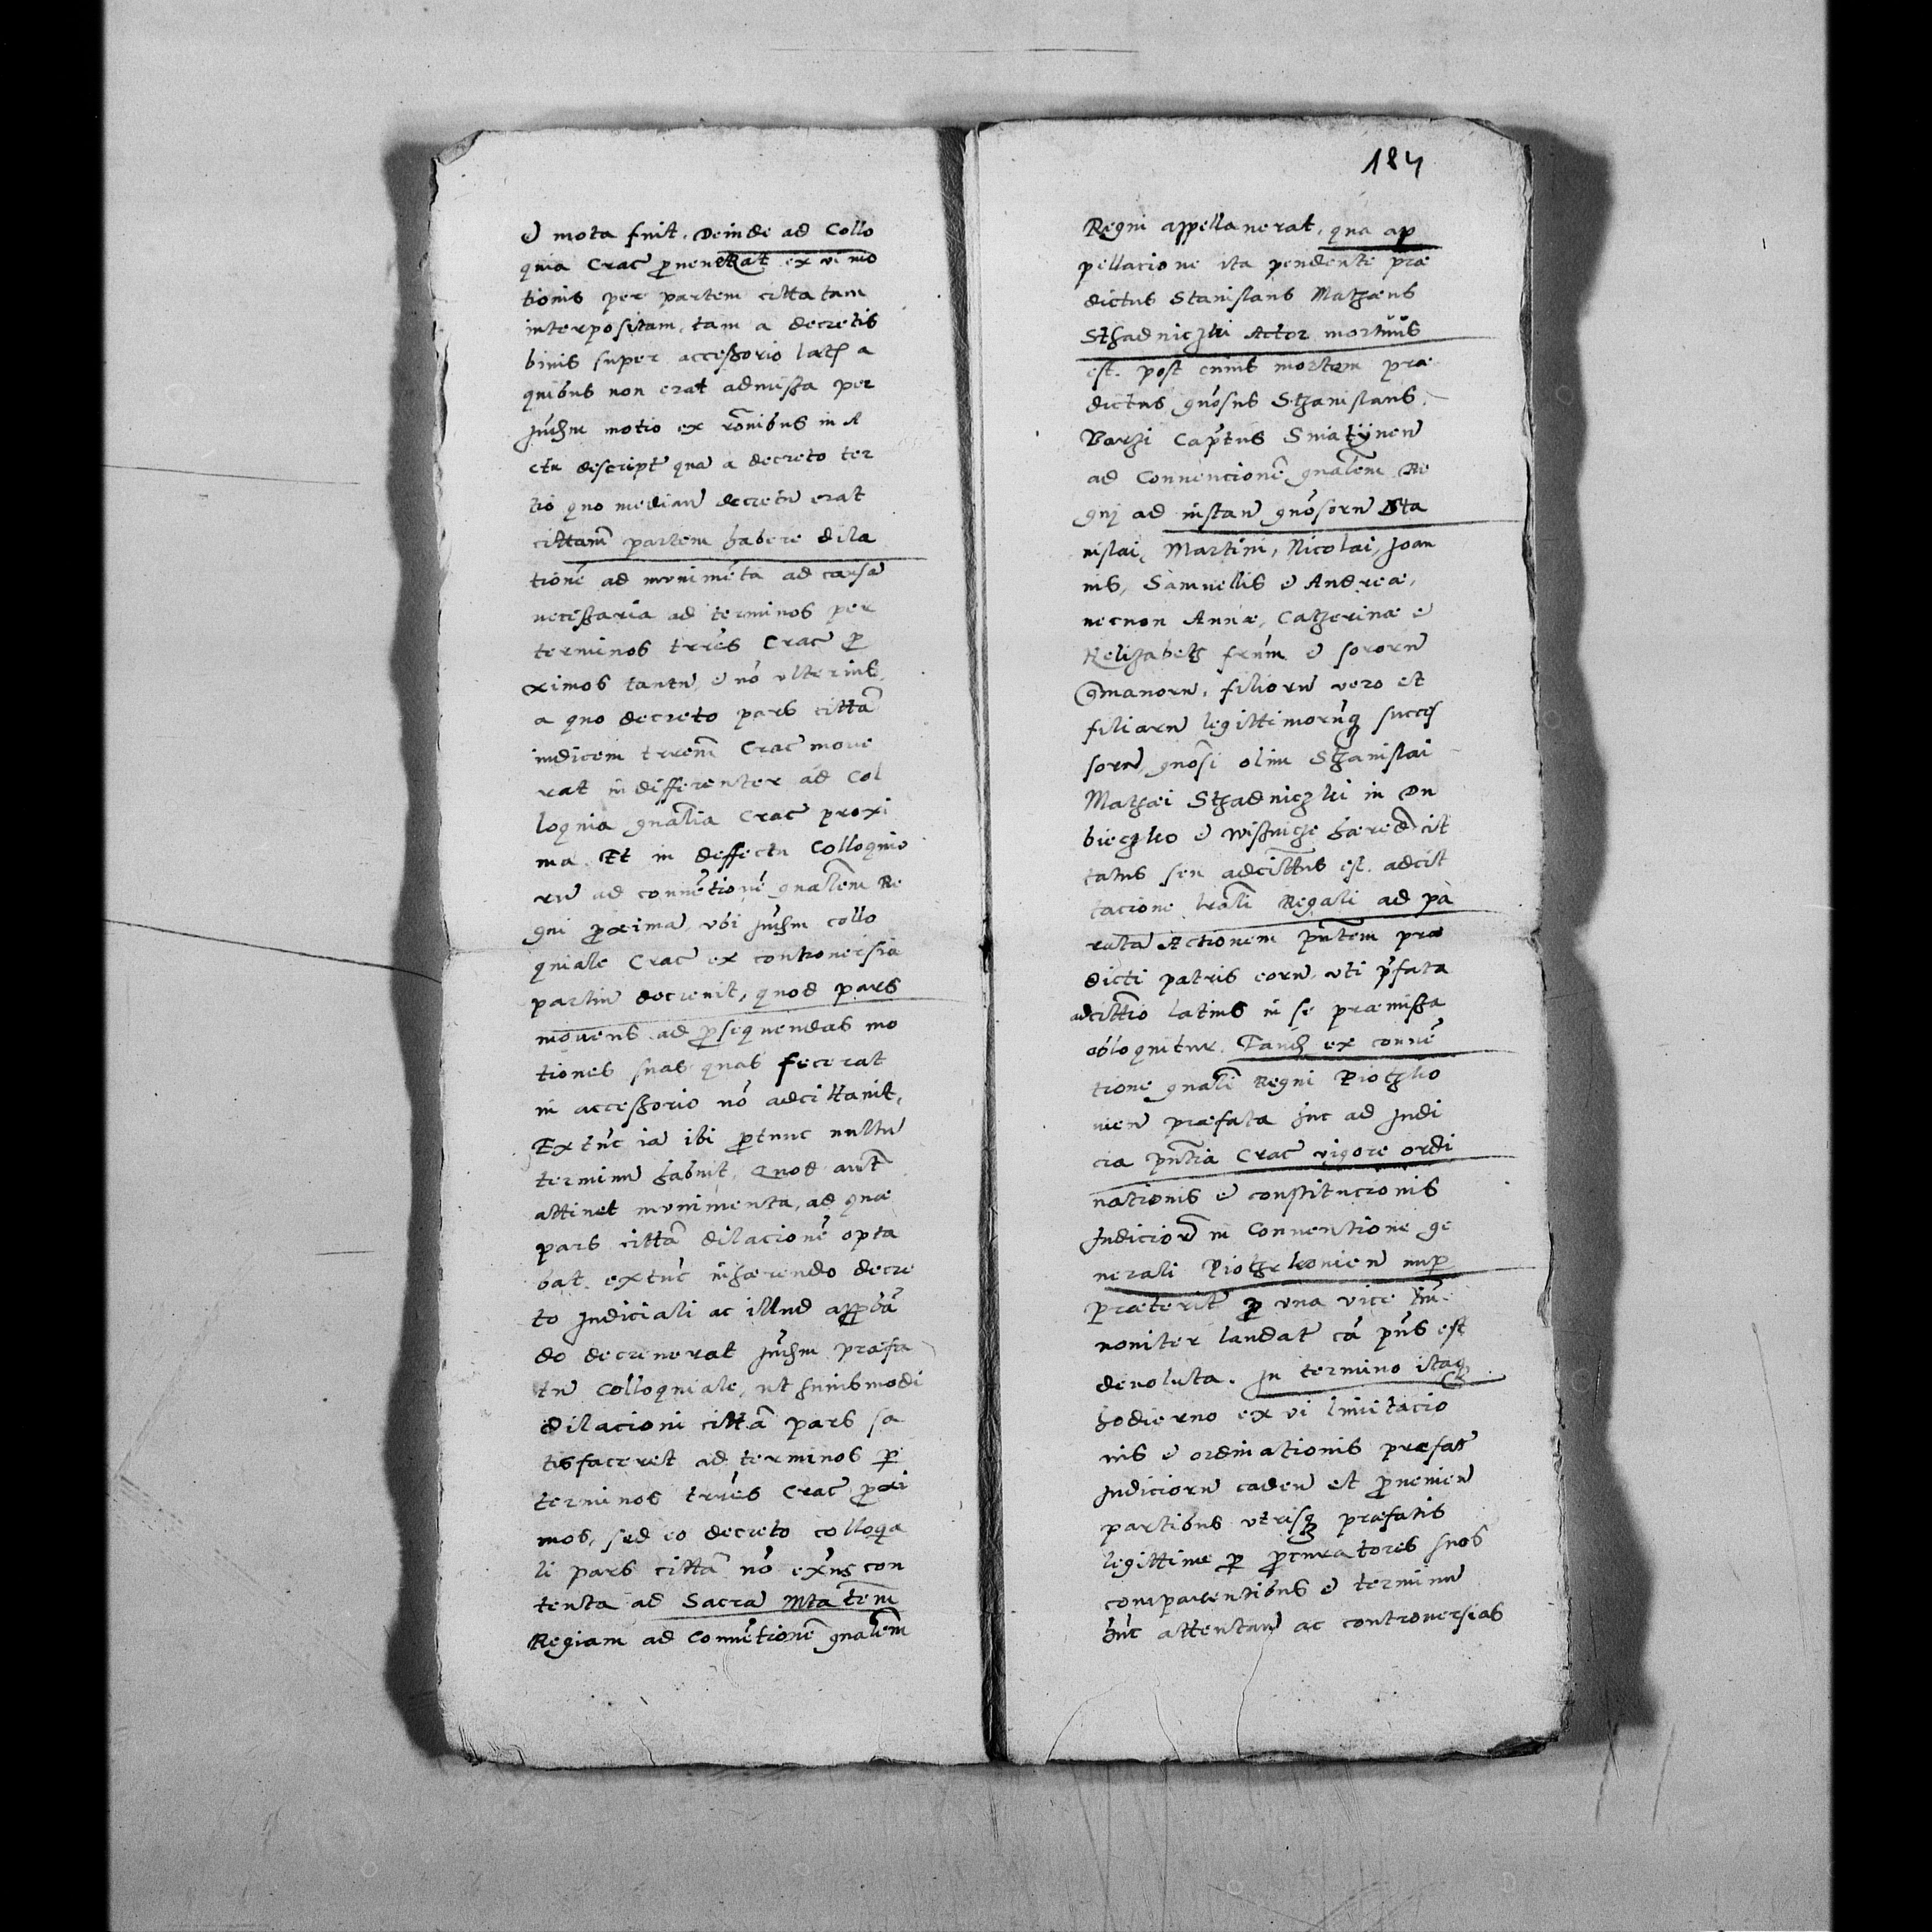 et mota fuit. Deinde ad Collo
quia Crac̄ provenerat ex vi mo
tionis per partem cittatam
interpositam, tam a decretis
binis super accessorio lat̄ a
quibus non erat admissa per
Judm̄ motio ex rōnibus in A
ctu descript̄ qua a decreto ter
tio quo median̄ decretū erat
cittatam̄ partem habere dila
tionē ad munimēta ad causā
necessaria ad terminos per
terminos trrēs Crac̄ pro
ximos tantū, et nō ulterius,
a quo decreto pars cittā
iudicem trrenm̄ Crac̄ move
rat indifferenter ad Col
loquia gnālia Crac̄ proxi
ma. Et in deffectu Colloquio
rū ad convētionē gnālem Re
gni proximā, ubi Judm̄ collo
quiale Crac̄ ex controversia
partiū decrevit, quod pars
movens ad prosequendas mo
tiones suas quas fecerat
in accessorio nō adcittavit,
Extūc iā ibi protunc nullū
terminū habuit. Quod aut̄
attinet munimenta, ad quae
pars cittā dilacionē opta
bat. extūc inhaerendo decre
to Judiciali ac illud approbā
do decreverat Judm̄ praefa
tū Colloquiale, ut huiusmodi
dilacioni cittā pars sa
tisfaceret ad terminos per
terminos trrēs Crac̄ proxi
mos, sed eo decreto colloqa
li pars cittā nō exn̄s con
tenta ad Sacrā Mtatem
Regiam ad Convētionē gnālem
184
Regni appellaverat, qua ap
pellacione ita pendente prae
dictus Stanislaus Mathaeus
Sthadniczki Actor mortuus
est. post cuius mortem prae
dictus gnōsus Sthanislaus
Barzi Capt̄us Sniatÿnen̄
ad Convencionē gnālem Re
gnj ad instan̄ gnōsorū Sta
nislai, Martini, Nicolai, Joan
nis, Samuellis et Andreae,
necnon Annae, Catherinae et
Helizabeth frūm et sororū
Gmanorū, filiorū vero et
filiarū legittimorūq succes
sorū, gnōsi olim Sthanislai
Mathaei Sthadniczki in Du
bieczko et Wisznicze haered̄ cit
tatus seu adcittatus est. adcit
tacione lrāli Regali ad pa
ratā Actionem pn̄tem prae
dicti patris eorū uti pr̄fata
adcittio latius in se praemissa
obloquitur. Tandē ex conve̅
tione gnāli Regni Piotrko
vien̄ praefata huc ad Judi
cia pn̄tia Crac̄ vigore ordi
nationis et constitucionis
Judiciorū in Conventione ge
nerali Piotrkovien̄ nuper
praeterit̄ pro una vice
noniter laudat̄ cā pn̄s est
devoluta. In termino itaq
hodierno ex vi limitacio
nis et ordinationis praefat̄
Judiciorū caden̄ et provenien̄
partibus utrisq praefatis
legittime per procuratores suos
comparentibus et terminū
hūc attentan̄ ac controversias